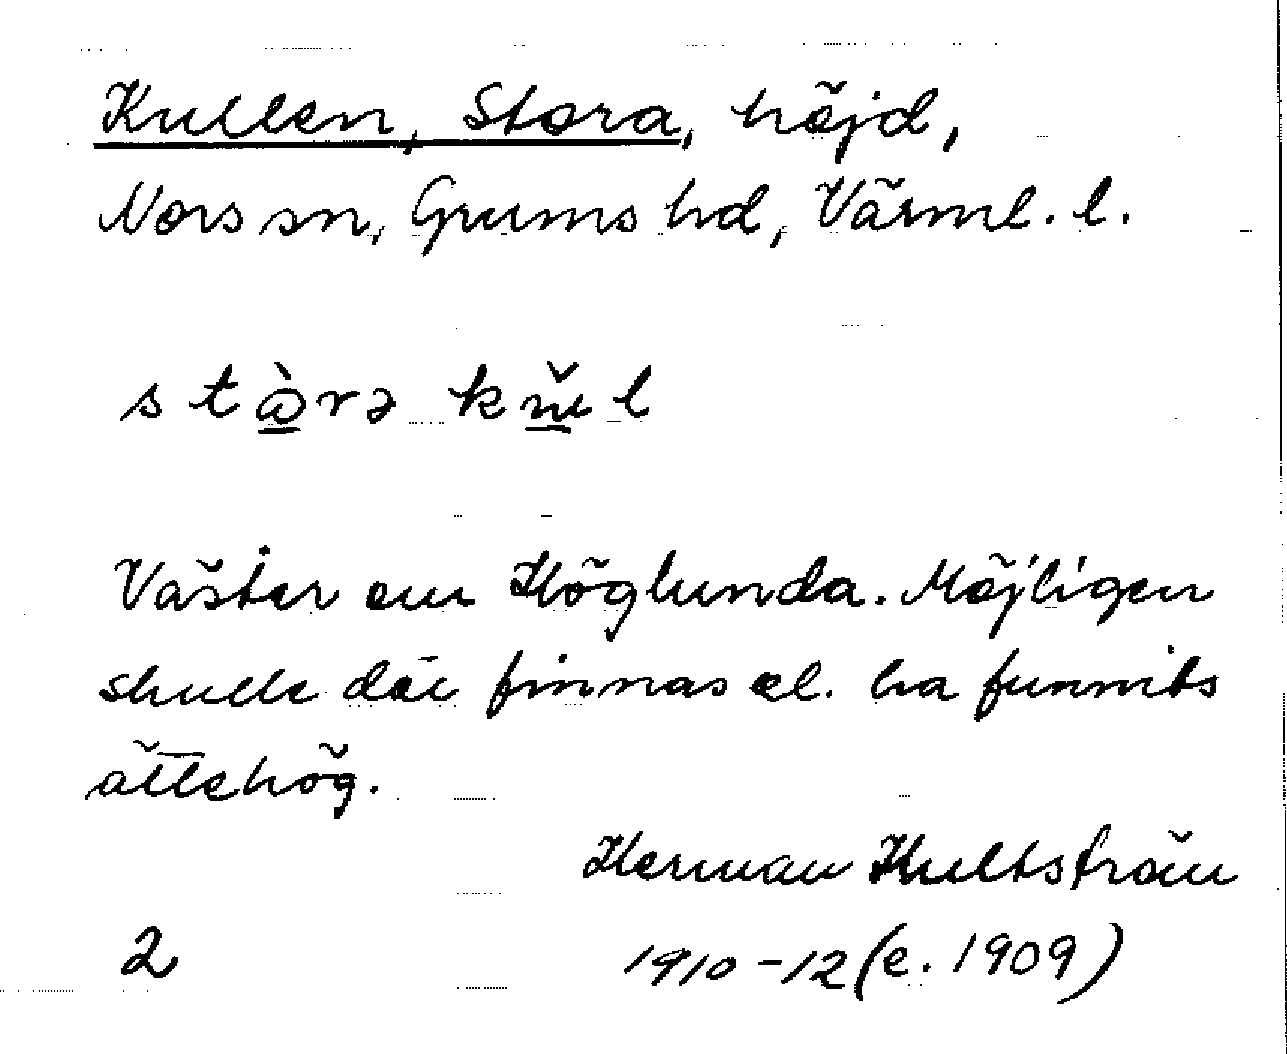 Kullen, Stora, höjd,
Nors sn, Grums hd, Värml. l.
väster om Höglunda. Möjligen
skulle där finnas el. ha funnits
ättehög.
Herman Hultström
2 1910-12 (e. 1909)